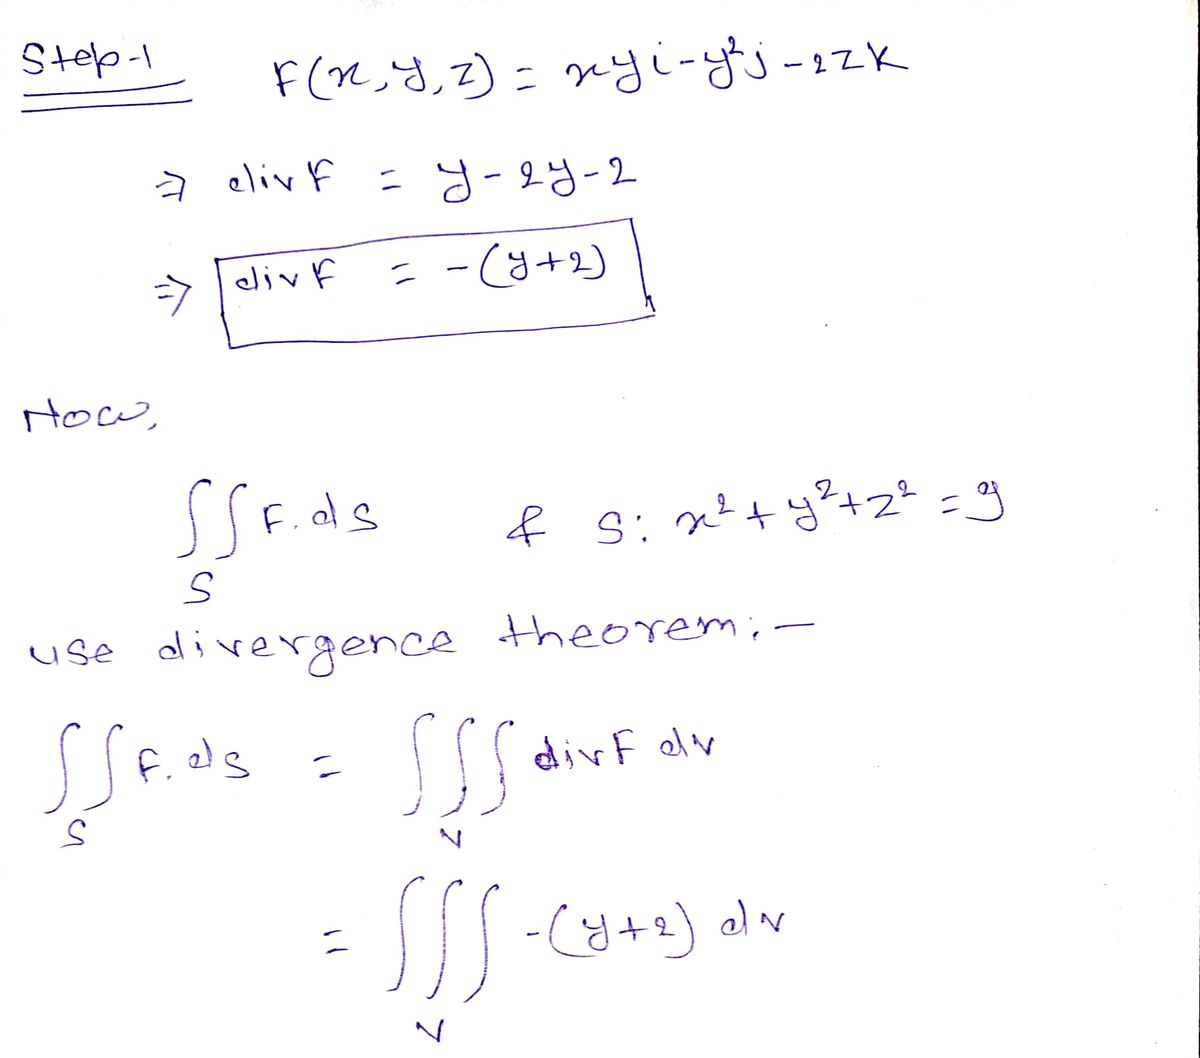 Step-1
F(x, y, z) = xyi - y²j - 2zk
⇒ div F = y - 2y - 2
⇒ div F = -(y+2)
Now,
∬_S F.ds & S: x² + y² + z² = 9
use divergence theorem:-
∬_S F.ds = ∭_V div F dv
= ∭_V -(y+2) dv